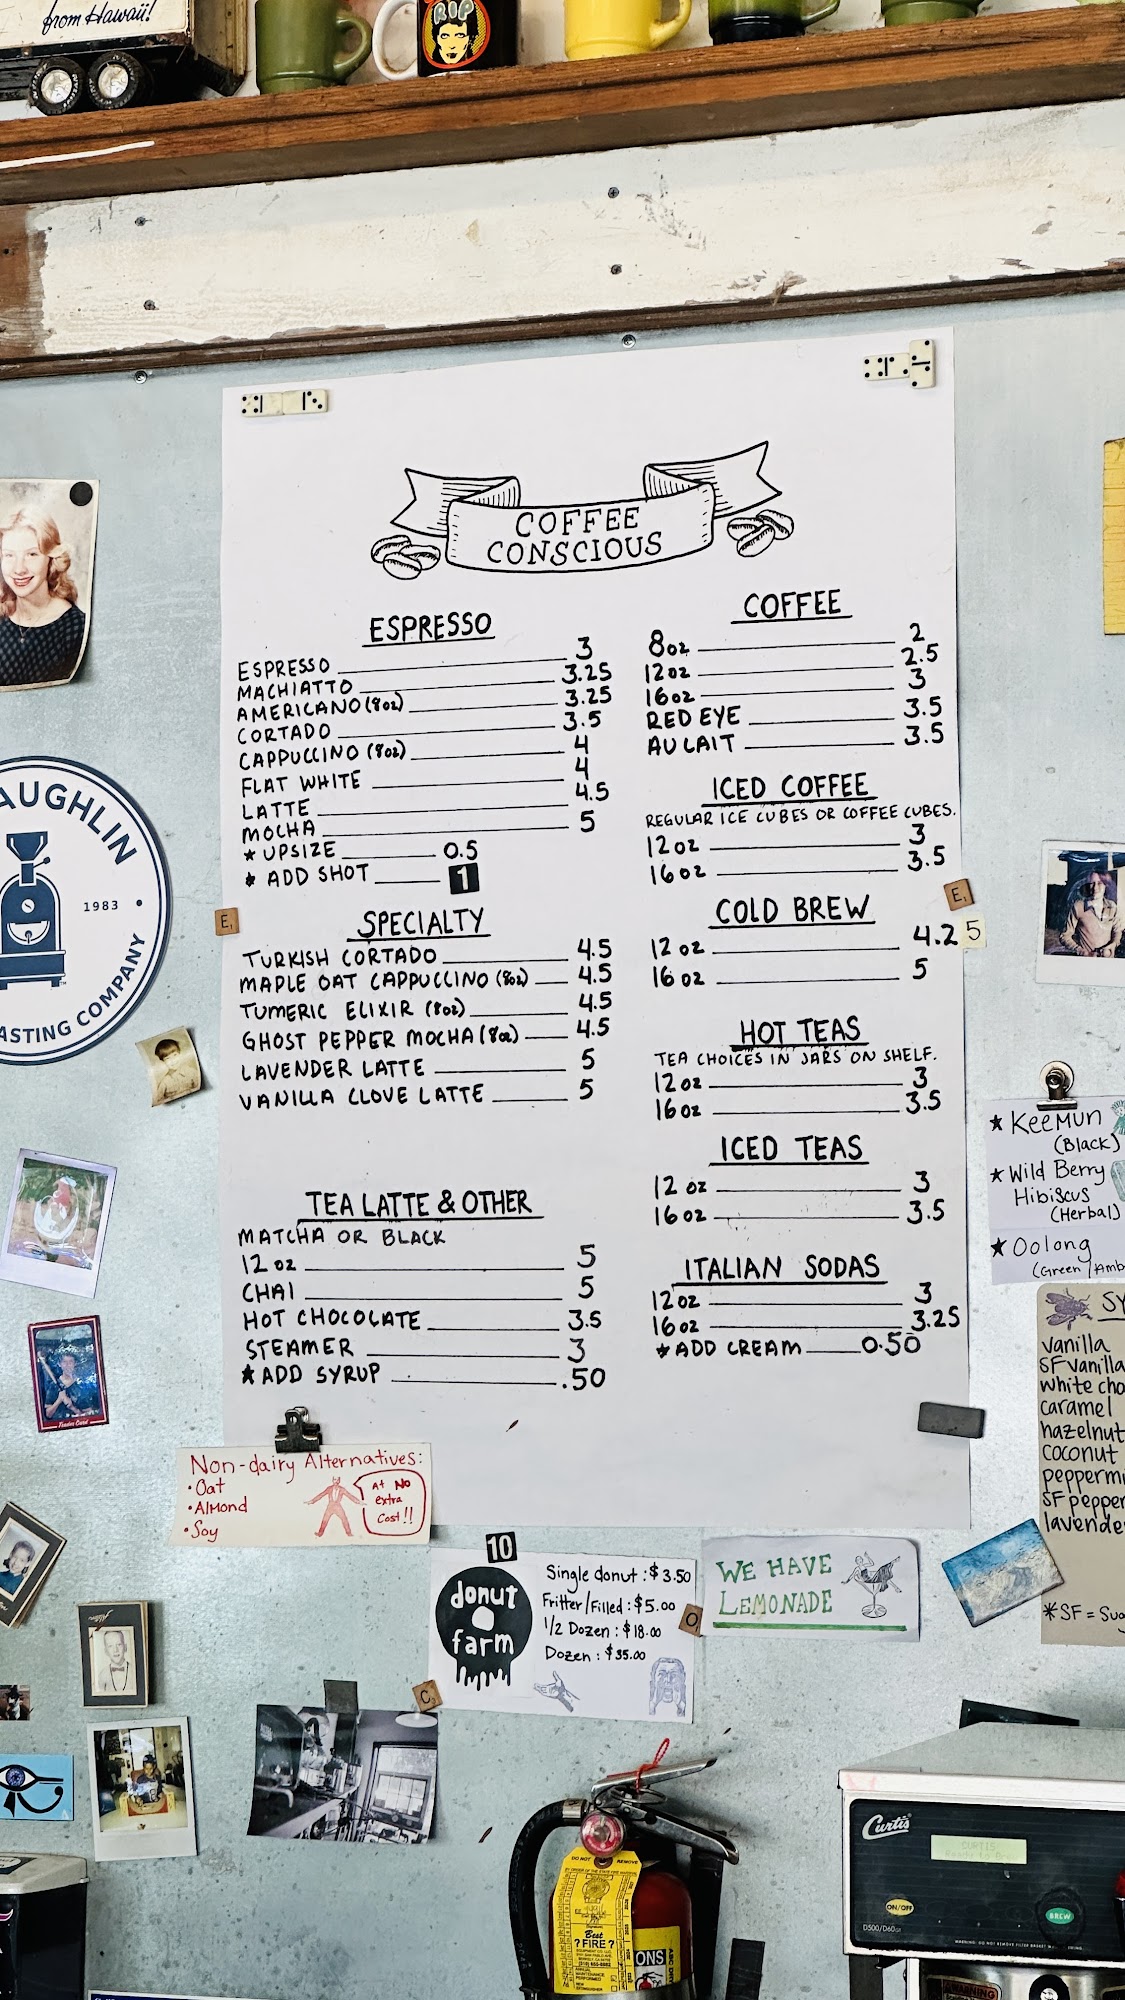 from Hawaii!
RIP
COFFEE
CONSCIOUS
ESPRESSO
ESPRESSO 3
MACHIATTO 3.25
AMERICANO (8oz) 3.25
CORTADO 3.5
CAPPUCCINO (8oz) 4
FLAT WHITE 4
LATTE 4.5
MOCHA 5
* UPSIZE 0.5
* ADD SHOT 1
SPECIALTY
TURKISH CORTADO 4.5
MAPLE OAT CAPPUCCINO (8oz) 4.5
TUMERIC ELIXIR (8oz) 4.5
GHOST PEPPER MOCHA (8oz) 4.5
LAVENDER LATTE 5
VANILLA CLOVE LATTE 5
TEA LATTE & OTHER
MATCHA OR BLACK
12oz 5
CHAI 5
HOT CHOCOLATE 3.5
STEAMER 3
* ADD SYRUP .50
COFFEE
8oz 2
12oz 2.5
16oz 3
RED EYE 3.5
AU LAIT 3.5
ICED COFFEE
REGULAR ICE CUBES OR COFFEE CUBES.
12oz 3
16oz 3.5
COLD BREW
12oz 4.25
16oz 5
HOT TEAS
TEA CHOICES IN JARS ON SHELF.
12oz 3
16oz 3.5
ICED TEAS
12oz 3
16oz 3.5
ITALIAN SODAS
12oz 3
16oz 3.25
* ADD CREAM 0.50
E1
E1
AUGHLIN
1983
ASTING COMPANY
* Keemun
(Black)
* Wild Berry
Hibiscus
(Herbal)
* Oolong
(Green / Amb
SY
vanilla
SF vanilla
white cho
caramel
hazelnut
coconut
peppermi
SF pepper
lavende
*SF = Sug
Non-dairy Alternatives:
• Oat
• Almond
• Soy
At No
extra
cost!!
10
donut
farm
Single donut : $3.50
Fritter/Filled : $5.00
1/2 Dozen : $18.00
Dozen : $35.00
O
C
WE HAVE
LEMONADE
Curtis
CURTIS
ON/OFF
BREW
D500/D60GT
DO NOT REMOVE
Best
? FIRE ?
ONS
ABC
WARNING